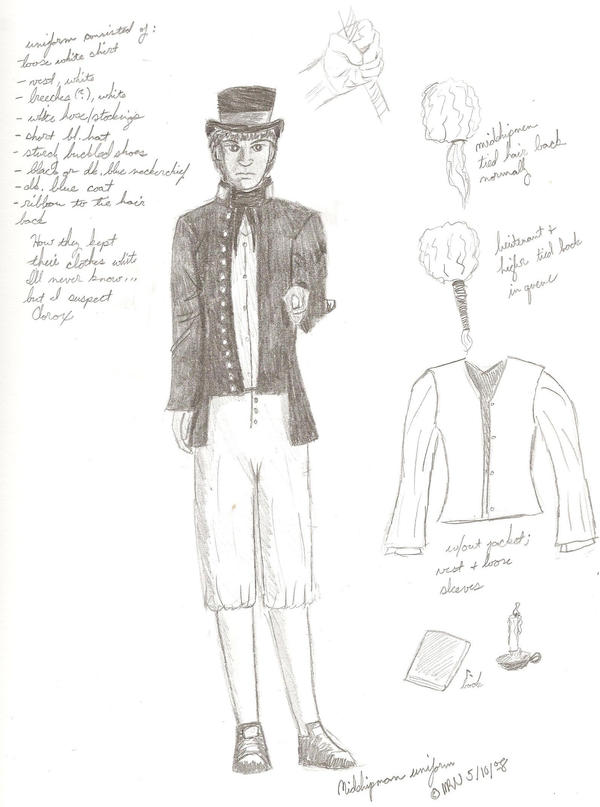 uniform consisted of:
-loose white shirt
- vest, white
- breeches (?), white
- white hose/stockings
- short bl. hat
- sturdy buckled shoes
- black or dk. blue neckerchief
- dk. blue coat
- ribbon to tie hair
back
How they kept
their clothes white
I'll never know...
but I suspect
Clorox
midshipmen
tied hair back
normally
lieutenant +
higher tied back
in queue
w/out jacket;
vest + loose
sleeves
book
Midshipman uniform
© MRN 5/10/08